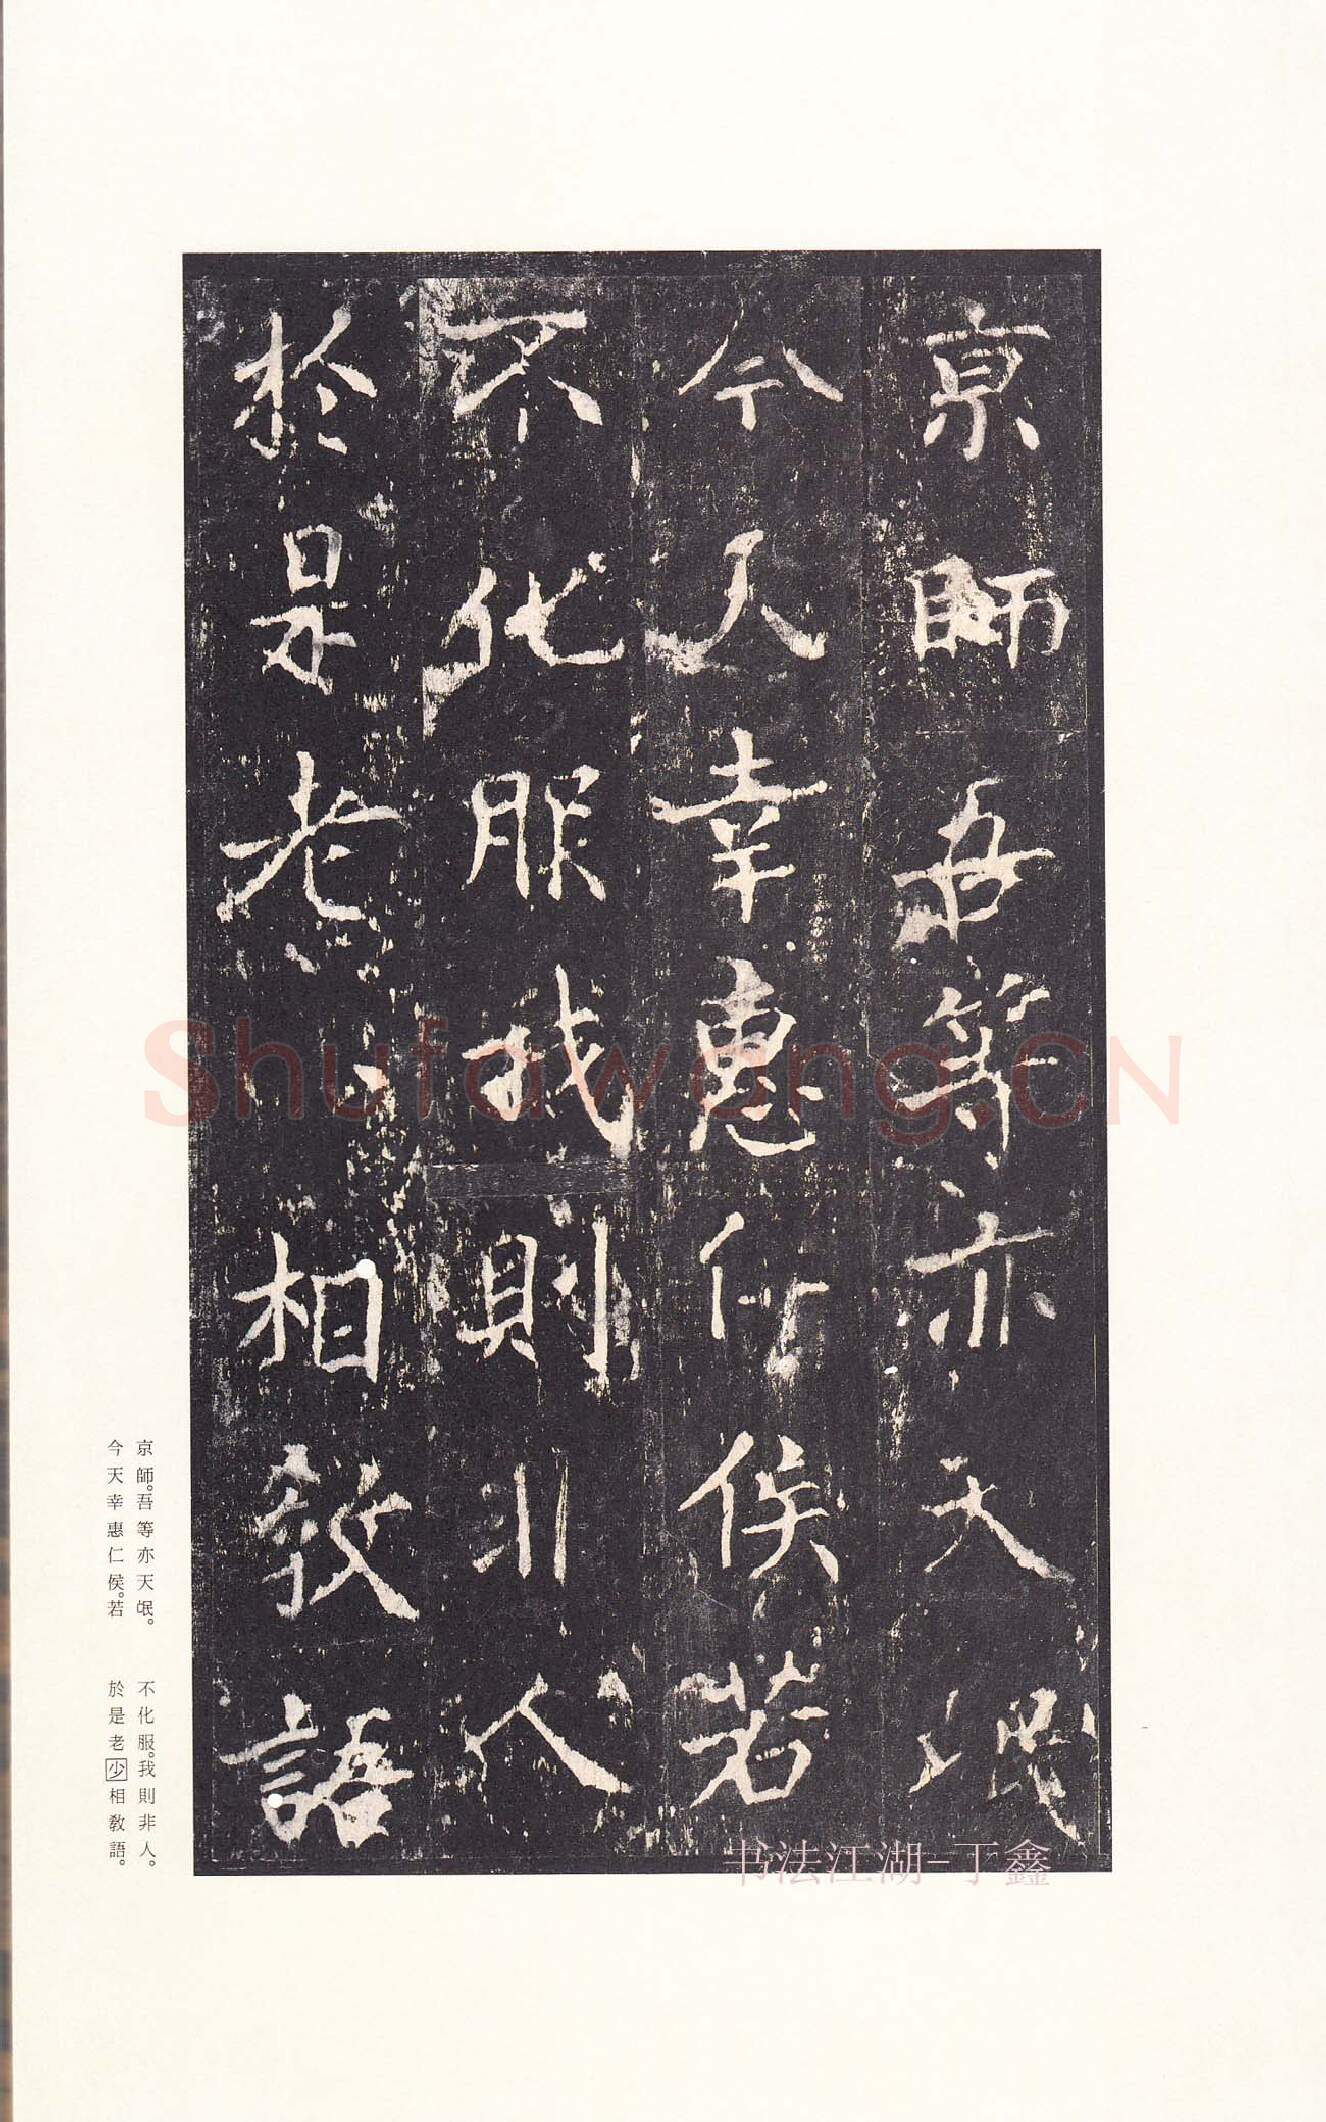 京師吾等亦天氓
今天幸惠仁侯若
不化服我則非人
於是老相教語
京師。吾等亦天氓。
今天幸惠仁侯。若
不化服。我則非人。
於是老少相教語。
Shufawang.CN
书法江湖-丁鑫